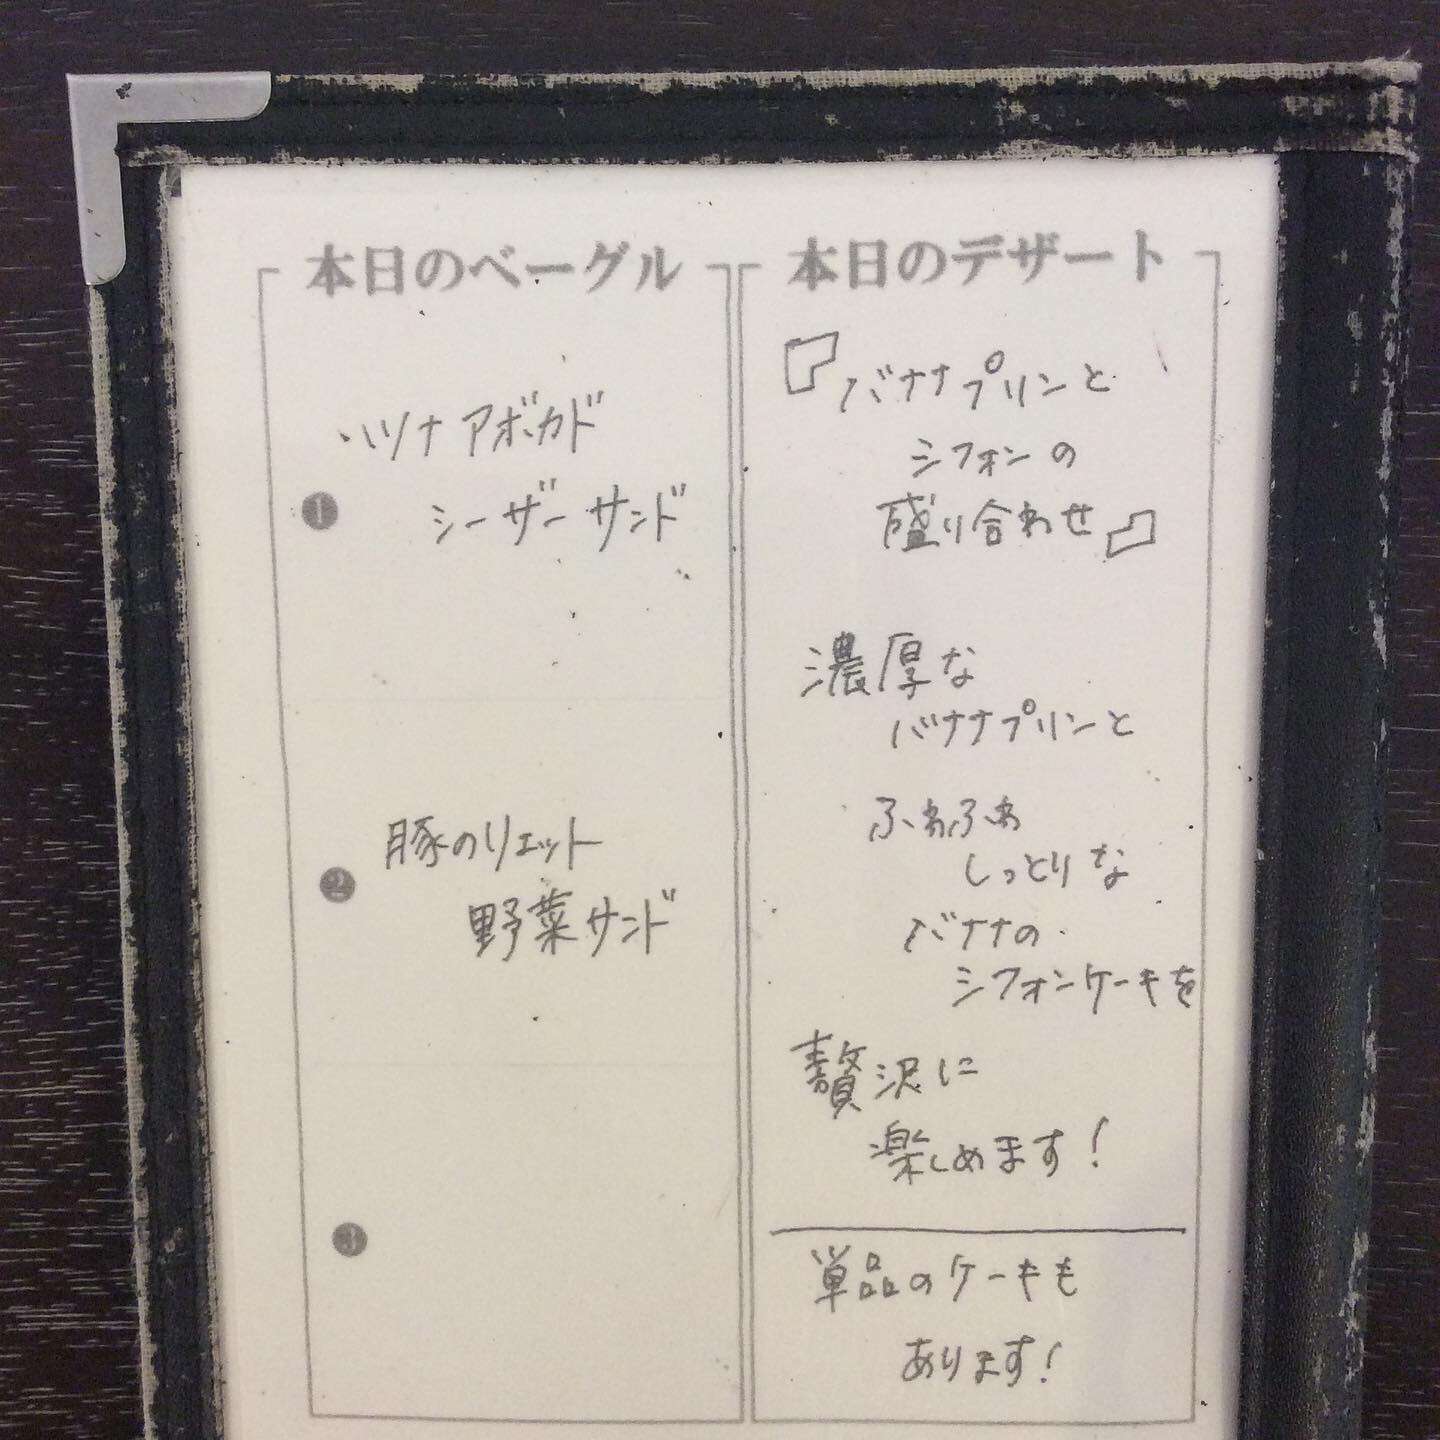 本日のベーグル
❶
ツナアボカド
シーザーサンド
❷
豚のリエット
野菜サンド
❸
本日のデザート
『バナナプリンと
シフォンの
盛り合わせ』
濃厚な
バナナプリンと
ふわふわ
しっとりな
バナナの
シフォンケーキを
贅沢に
楽しめます!
単品のケーキも
あります!